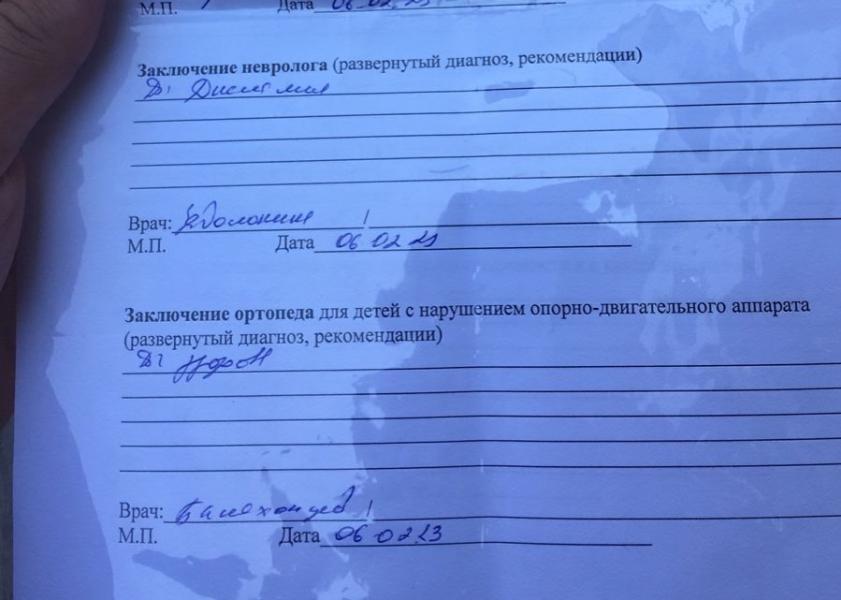 М.П. Дата 06 02 23
Заключение невролога (развернутый диагноз, рекомендации)
Дs
Врач:
М.П. Дата 06 02 23
Заключение ортопеда для детей с нарушением опорно-двигательного аппарата
(развернутый диагноз, рекомендации)
Дs
Врач:
М.П. Дата 06 02 23